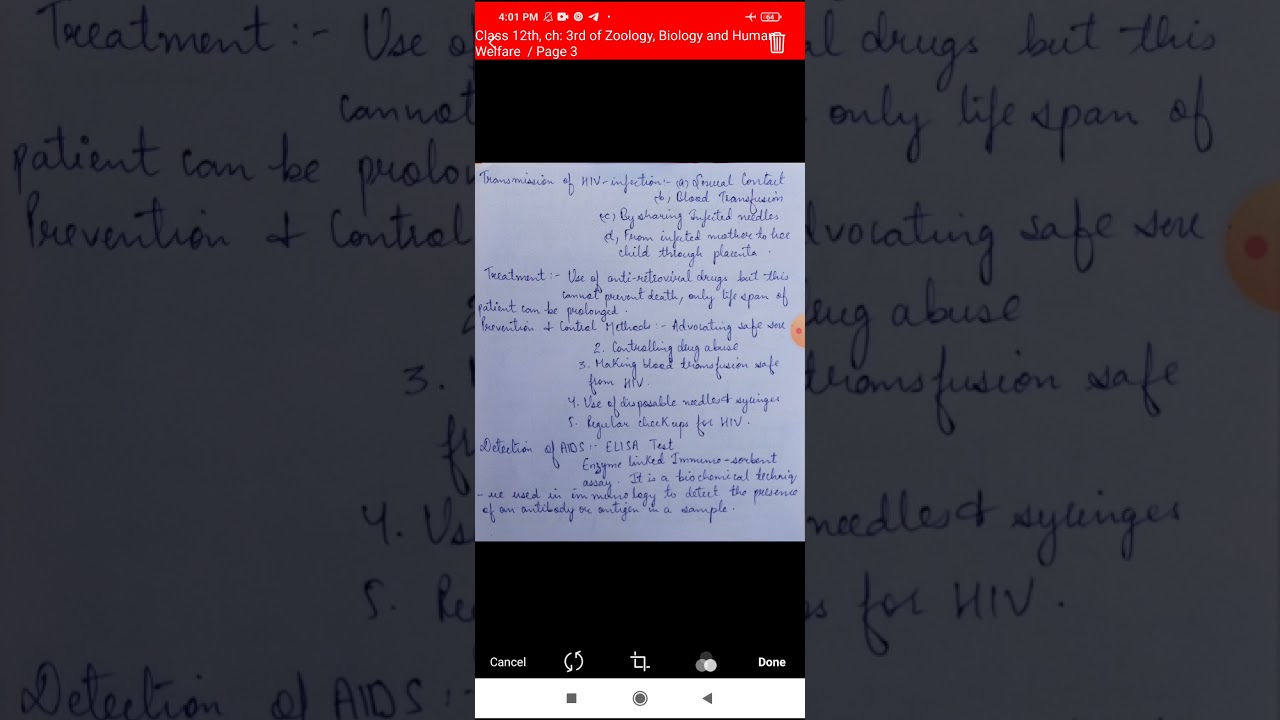 4:01 PM
64
Class 12th, ch: 3rd of Zoology, Biology and Human
Welfare / Page 3
Transmission of HIV-infection:- (a) Sexual Contact
(b) Blood Transfusion
(c) By sharing Infected needles
(d) From infected mother to her
child through placenta.
Treatment:- Use of anti-retroviral drugs but this
cannot prevent death, only life span of
patient can be prolonged.
Prevention & Control Methods:- Advocating safe sex
2. Controlling drug abuse
3. Making blood transfusion safe
from HIV.
4. Use of disposable needles & syringes
5. Regular checkups for HIV.
Detection of AIDS:- ELISA Test
Enzyme linked Immuno-sorbent
assay. It is a biochemical techniq
-ue used in immunology to detect the presence
of an antibody or antigen in a sample.
Cancel
Done